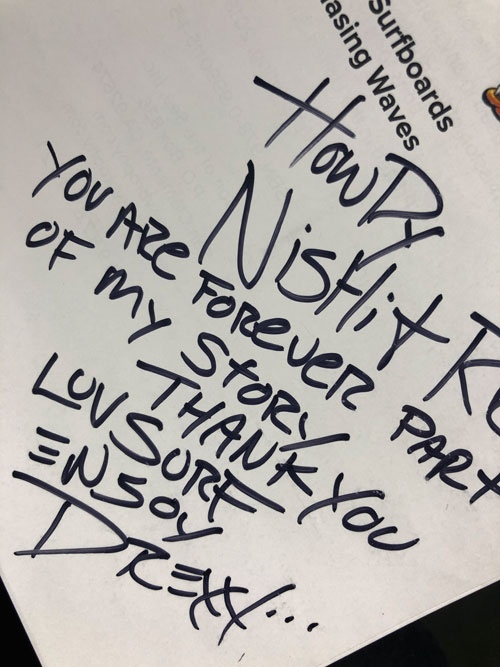 Surfboards
asing Waves
HOWDY
NISHIT
YOU ARE FOREVER PART
OF MY STORY
THANK YOU
LUV SURF
ENJOY
DREXX...